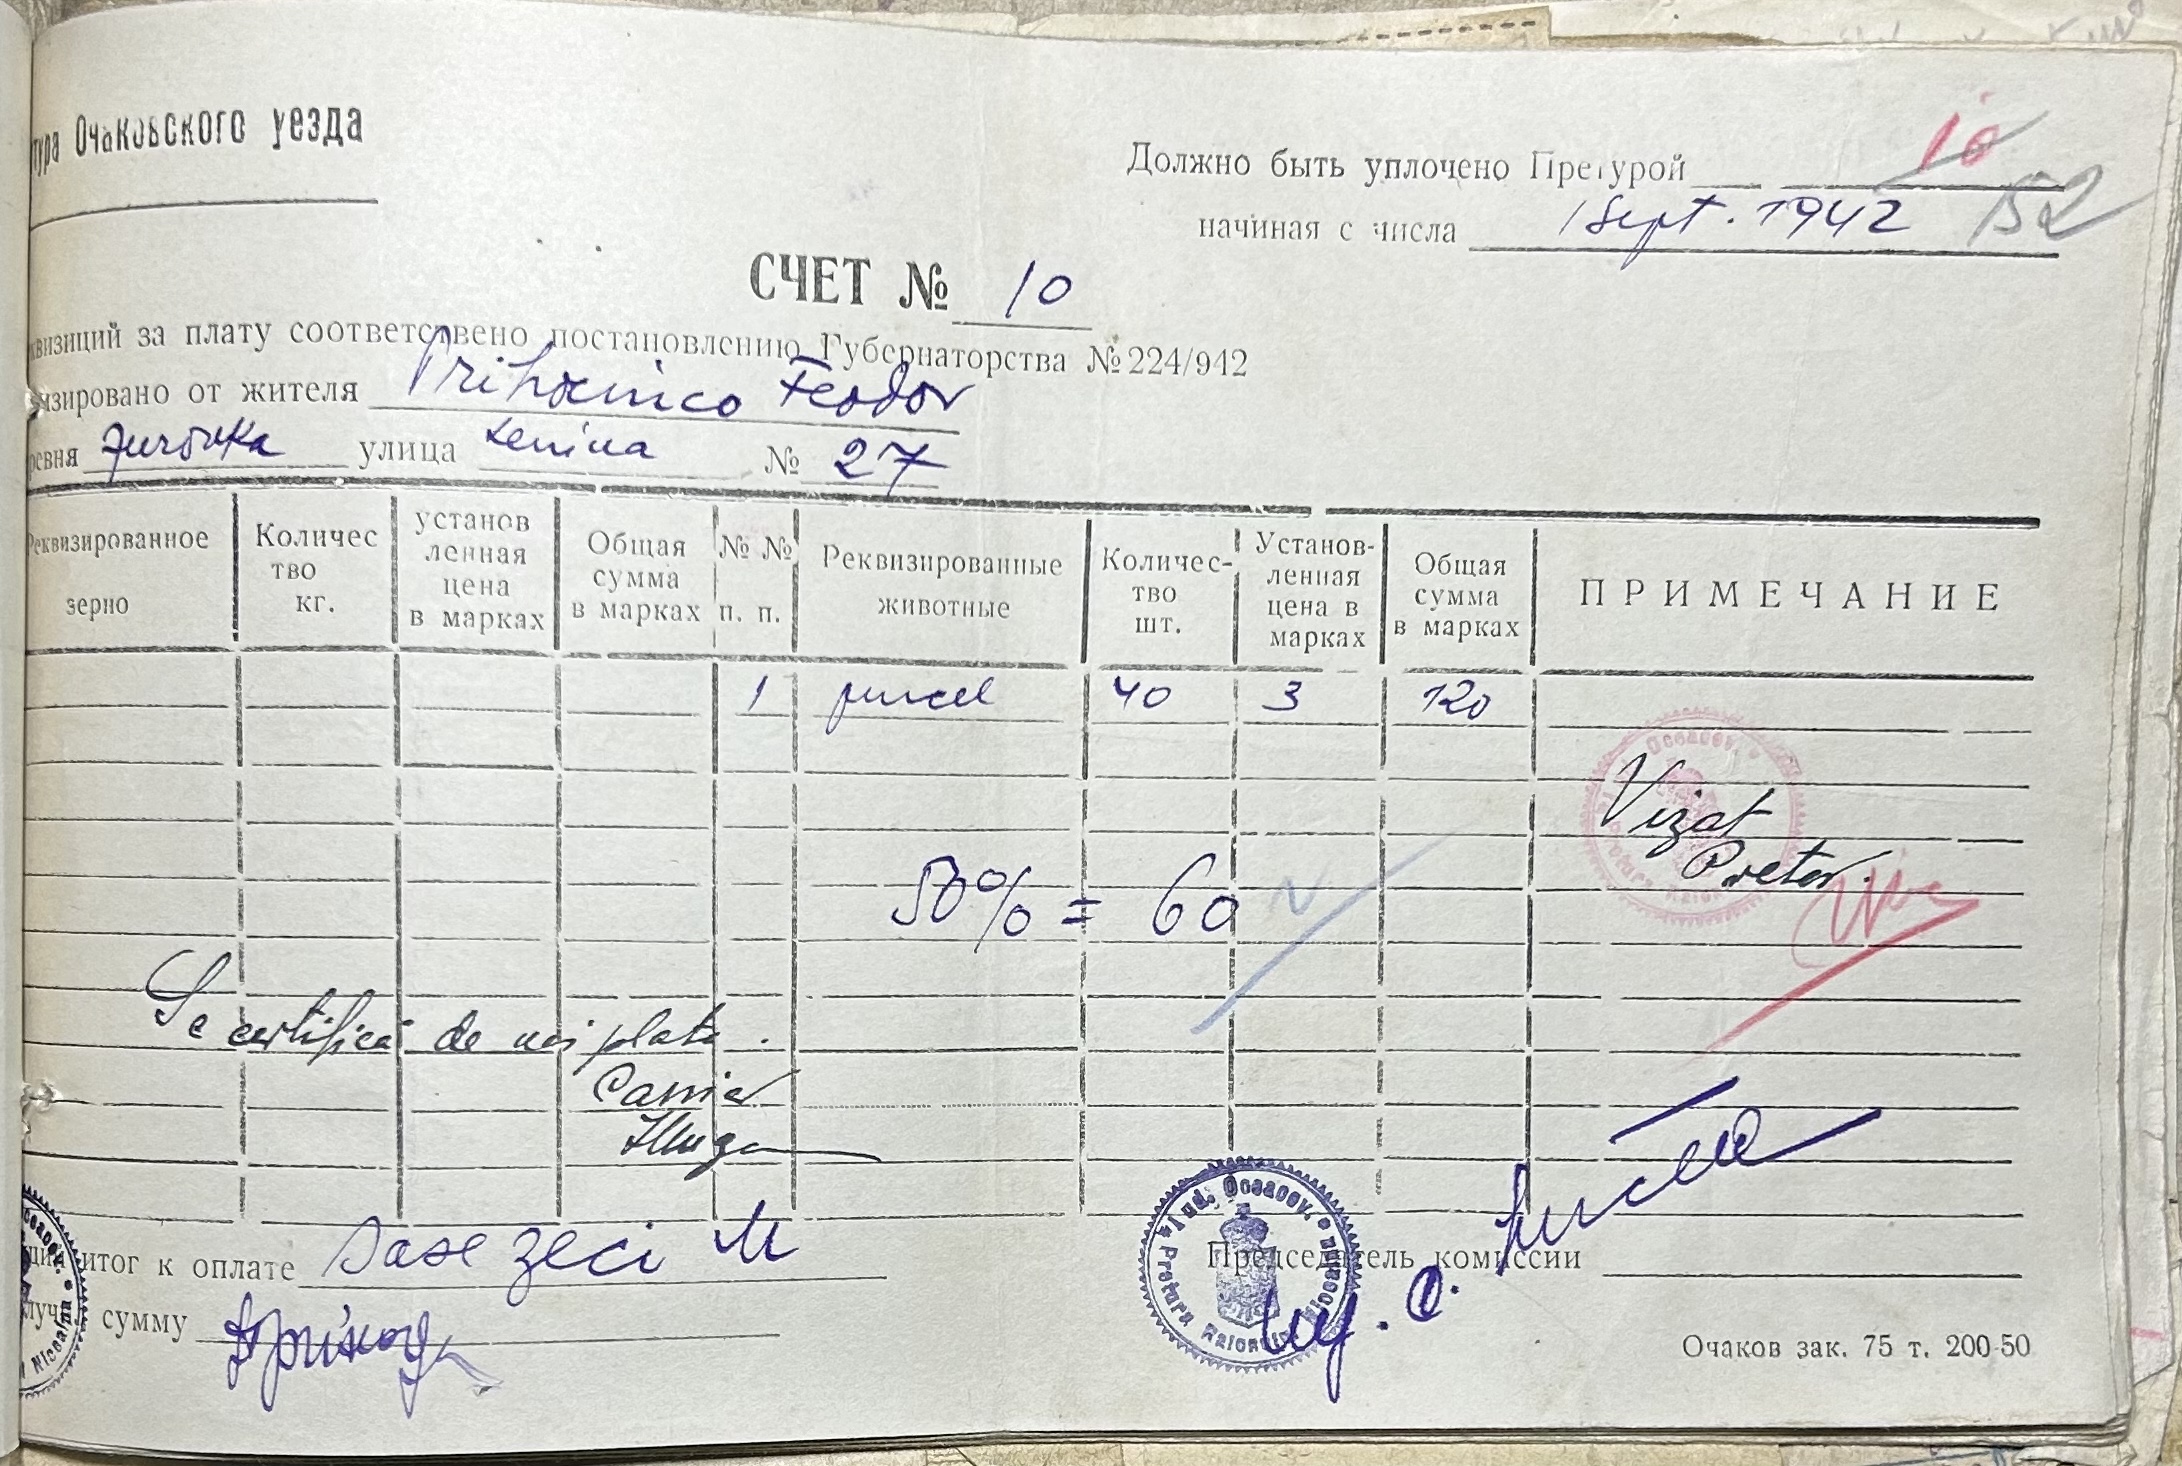 тура Очаковского уезда
Должно быть уплочено Претурой 10
начиная с числа 1 Sept. 1942 152
СЧЕТ № 10
квизиций за плату соответствено постановлению Губернаторства № 224/942
изировано от жителя Prihoenico Feodor
ревня улица Lenina № 27
Реквизированное зерно
Количес тво кг.
установ ленная цена в марках
Общая сумма в марках
№ № п. п.
Реквизированные животные
Количес- тво шт.
Установ- ленная цена в марках
Общая сумма в марках
ПРИМЕЧАНИЕ
1 purcel 40 3 120
Vizat
Pretor.
50% = 60
Se certifică de noi plata.
Casier
щий итог к оплате Sase zeci M
Председатель комиссии
лучил сумму
Jud. Oceacov. • Pretura Raionului Nicolaevca
Очаков зак. 75 т. 200-50